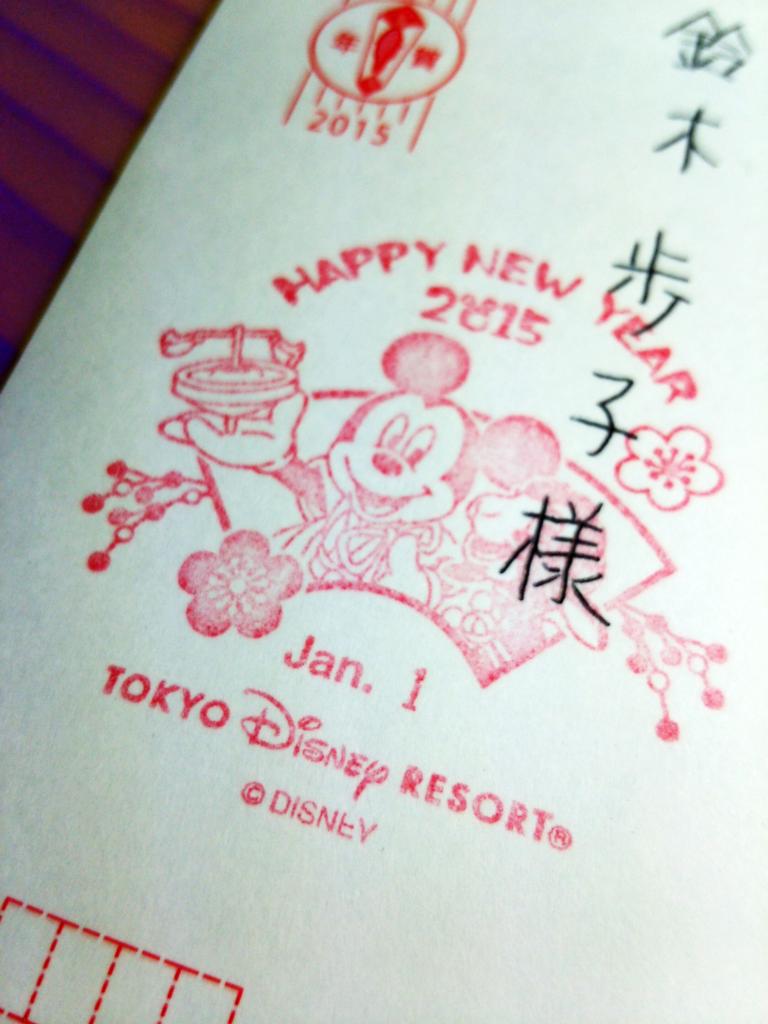 年賀
2015
鈴木歩子様
HAPPY NEW YEAR
2015
Jan. 1
TOKYO Disney RESORT®
© DISNEY